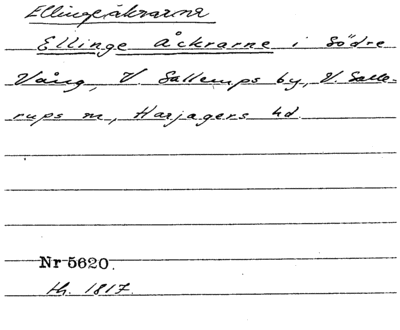 Ellingeåkrarna
Ellinge Åckrarne i Södre
Vång, V. Sallerups by, V. Salle-
rups sn, Harjagers hd.
Nr 5620.
th. 1817.